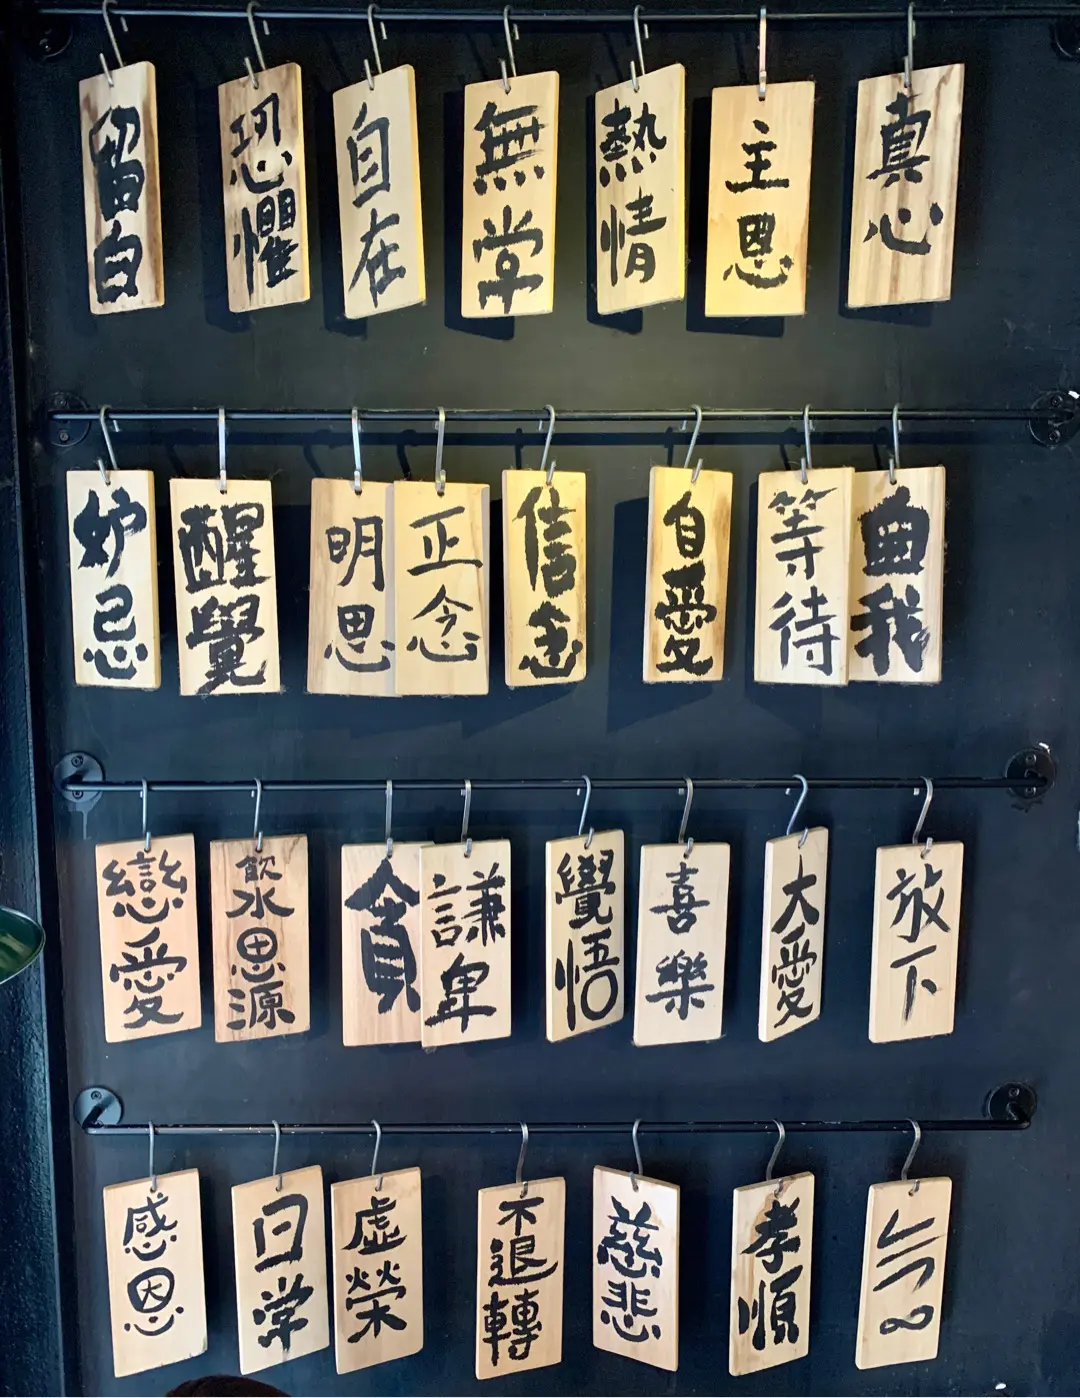 留白
恐懼
自在
無常
熱情
主恩
真心
妒忌
醒覺
明思
正念
信念
自愛
等待
我
戀愛
飲水思源
貪
謙卑
覺悟
喜樂
大愛
放下
感恩
日常
虛榮
不退轉
慈悲
孝順